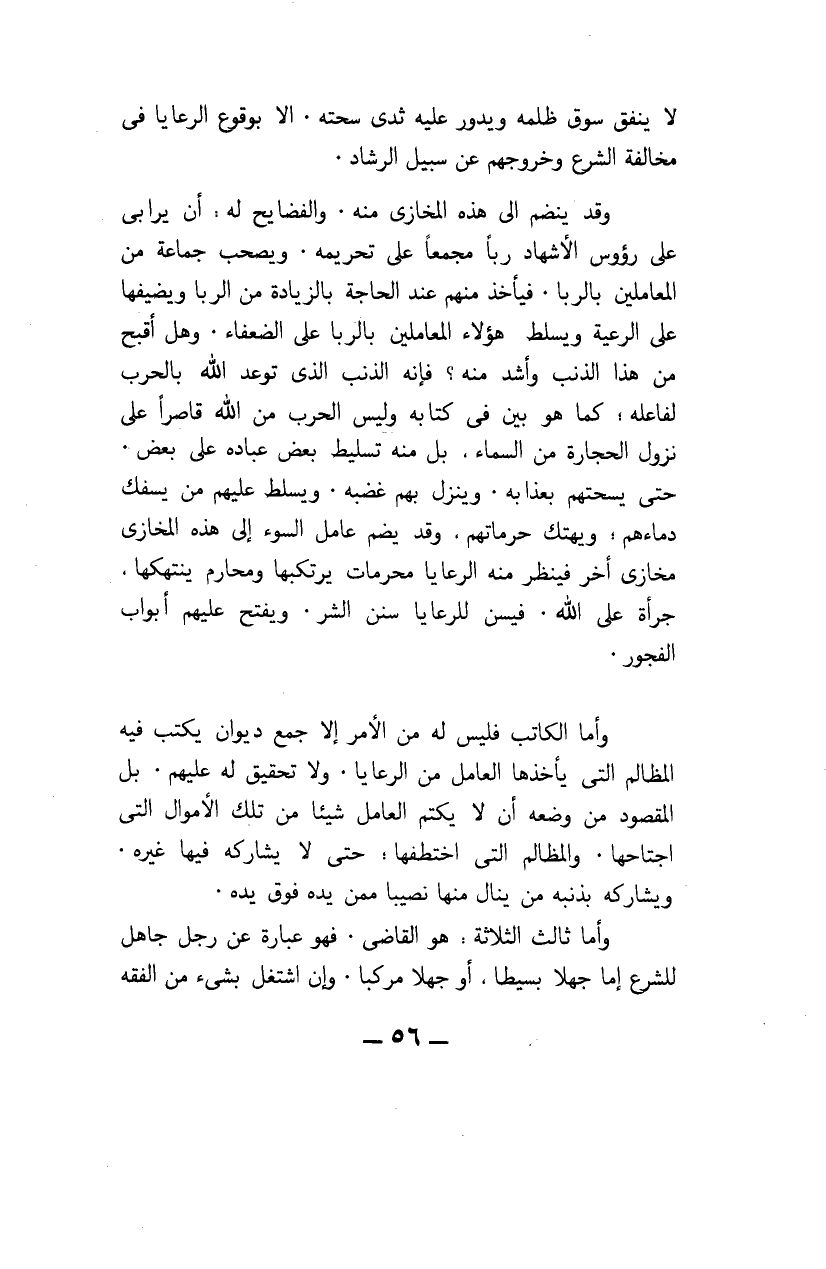 لا ينفق سوق ظلمه ويدور عليه ثدى سحته ٠ الا بوقوع الرعايا فى
مخالفة الشرع وخروجهم عن سبيل الرشاد ٠
وقد ينضم الى هذه المخازى منه ٠ والفضايح له : أن يرابى
على رؤوس الأشهاد رباً مجمعاً على تحريمه ٠ ويصحب جماعة من
المعاملين بالربا ٠ فيأخذ منهم عند الحاجة بالزيادة من الربا ويضيفها
على الرعية ويسلط هؤلاء المعاملين بالربا على الضعفاء ٠ وهل أقبح
من هذا الذنب وأشد منه ؟ فإنه الذنب الذى توعد الله بالحرب
لفاعله ؛ كما هو بين فى كتابه وليس الحرب من الله قاصراً على
نزول الحجارة من السماء ، بل منه تسليط بعض عباده على بعض ٠
حتى يسحتهم بعذابه ٠ وينزل بهم غضبه ٠ ويسلط عليهم من يسفك
دماءهم ؛ ويهتك حرماتهم ، وقد يضم عامل السوء إلى هذه المخازى
مخازى أخر فينظر منه الرعايا محرمات يرتكبها ومحارم ينتهكها ،
جرأة على الله ٠ فيسن للرعايا سنن الشر ٠ ويفتح عليهم أبواب
الفجور ٠
وأما الكاتب فليس له من الأمر إلا جمع ديوان يكتب فيه
المظالم التى يأخذها العامل من الرعايا ٠ ولا تحقيق له عليهم ٠ بل
المقصود من وضعه أن لا يكتم العامل شيئا من تلك الأموال التى
اجتاحها ٠ والمظالم التى اختطفها ؛ حتى لا يشاركه فيها غيره ٠
ويشاركه بذنبه من ينال منها نصيبا ممن يده فوق يده ٠
وأما ثالث الثلاثة : هو القاضى ٠ فهو عبارة عن رجل جاهل
للشرع إما جهلا بسيطا ، أو جهلا مركبا ٠ وإن اشتغل بشىء من الفقه
— ٥٦ —